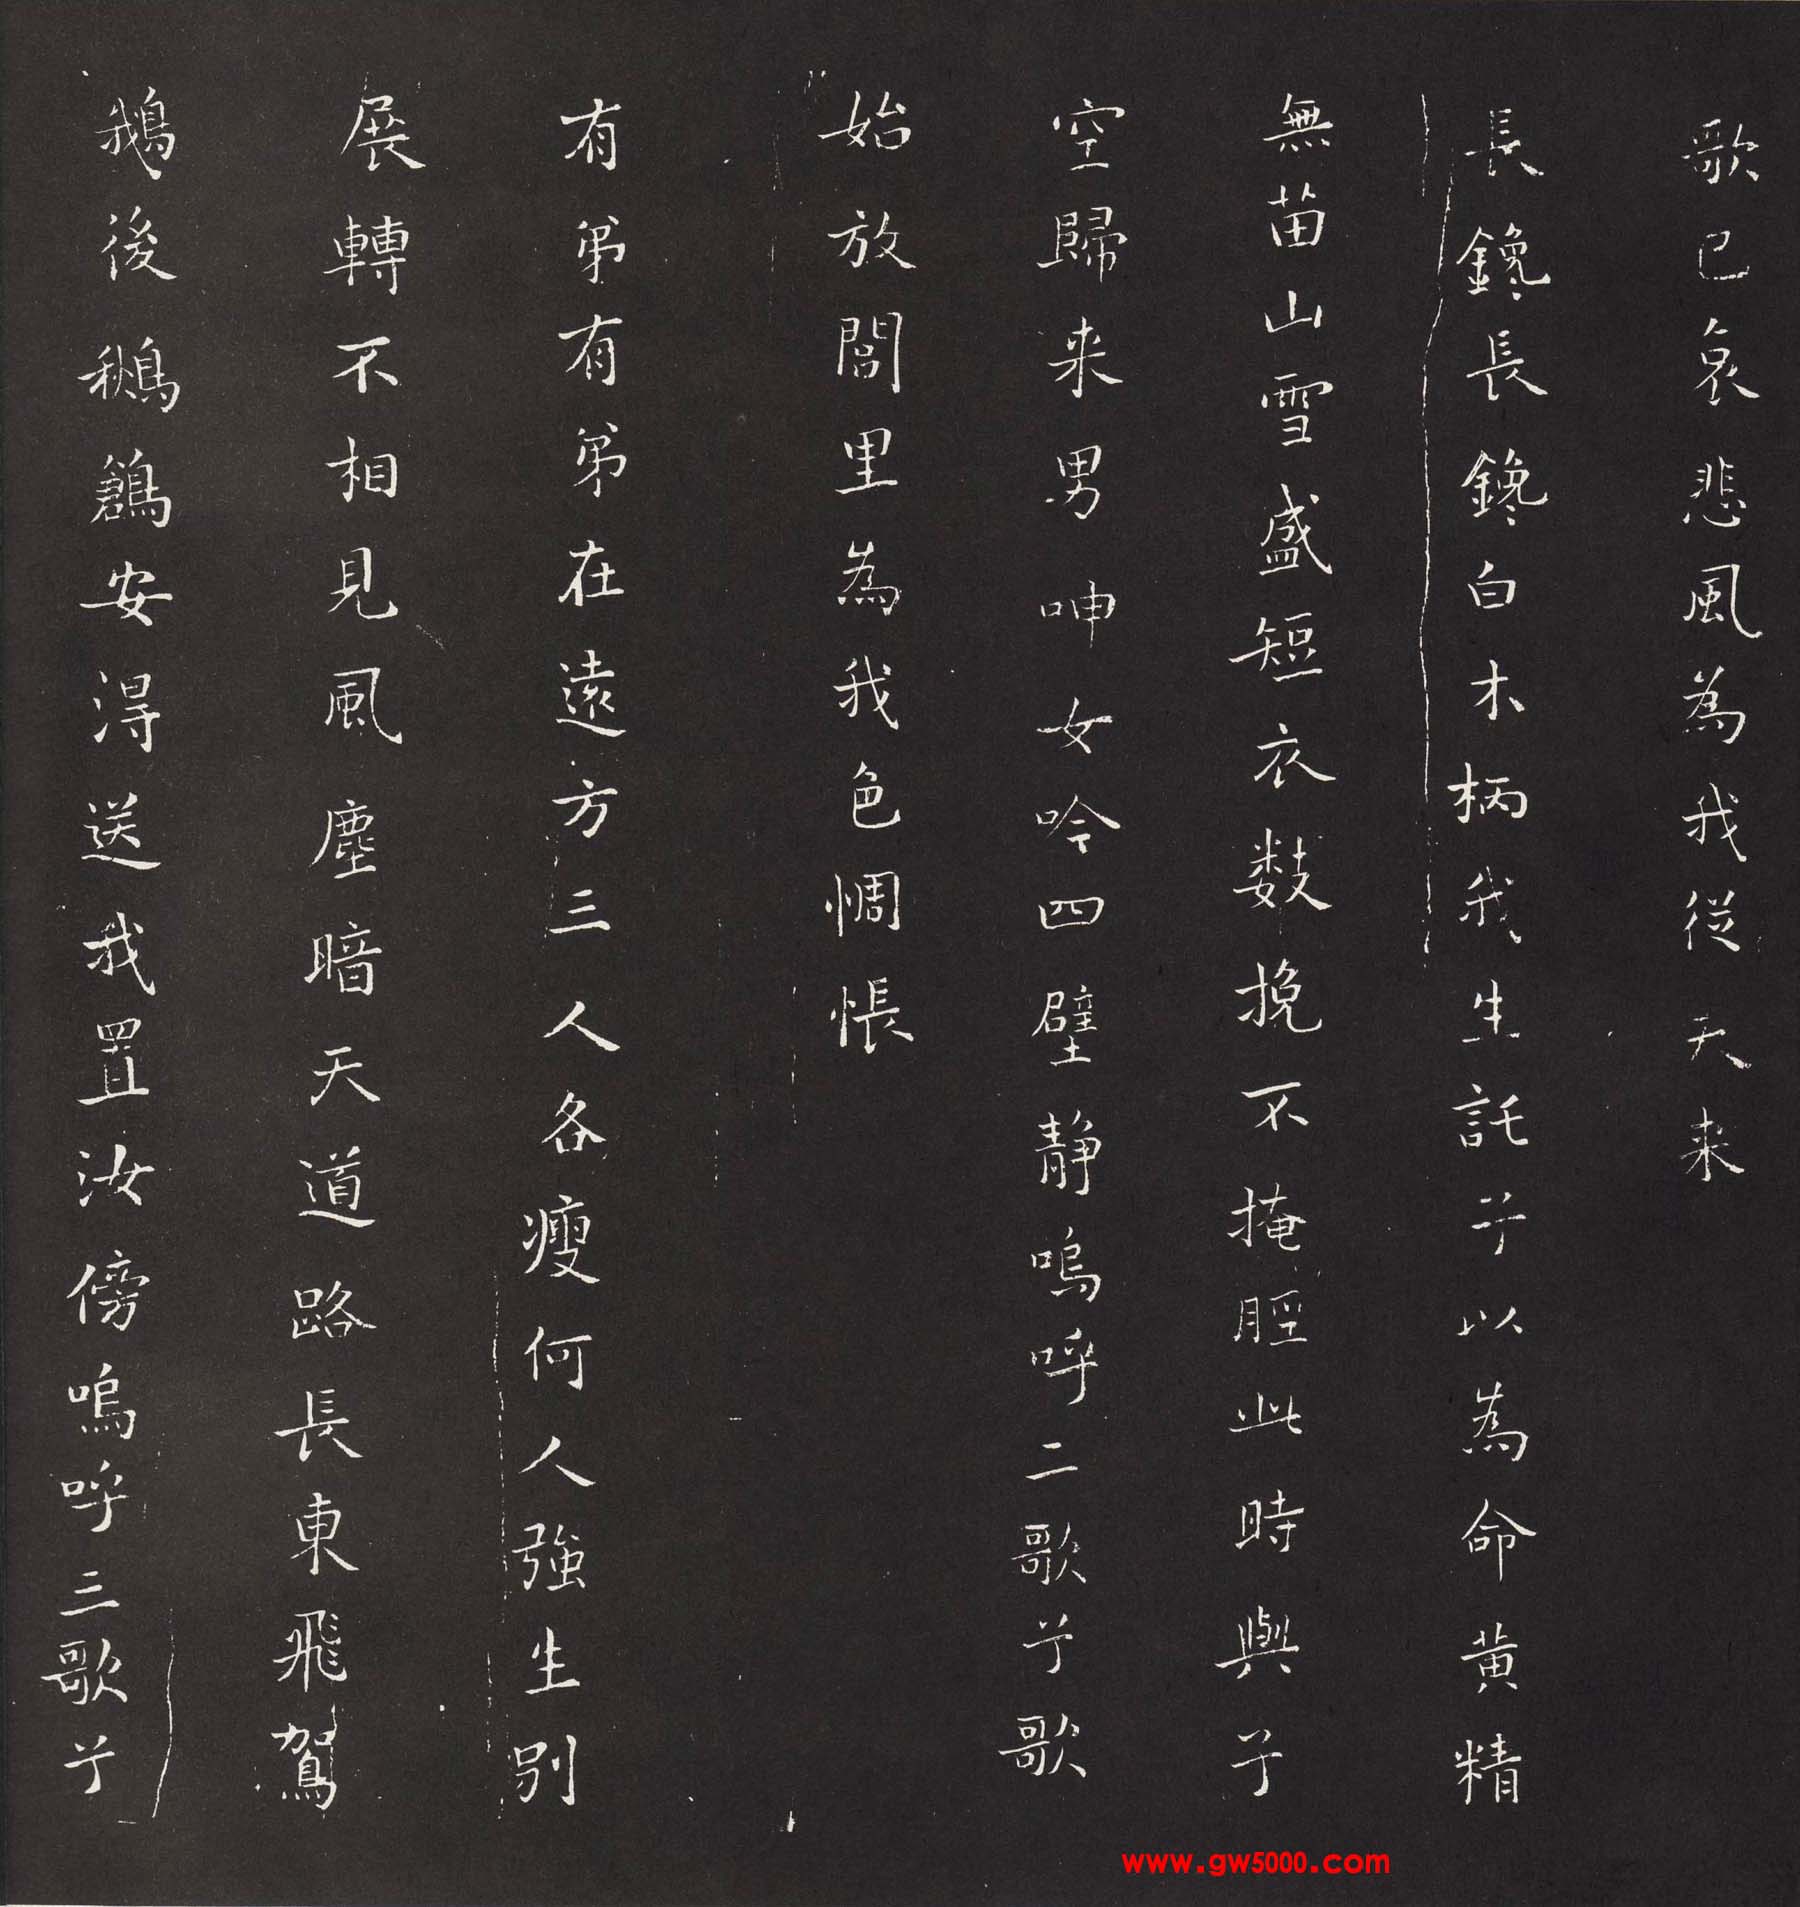 歌已哀悲風為我從天来
長鑱長鑱白木柄我生託子以為命黄精
無苗山雪盛短衣数挽不掩脛此時與子
空歸来男呻女吟四壁静嗚呼二歌兮歌
始放閭里為我色惆悵
有弟有弟在遠方三人各瘦何人強生别
展轉不相見風塵暗天道路長東飛鴐
鵝後鶖鶬安得送我置汝傍嗚呼三歌兮
www.gw5000.com